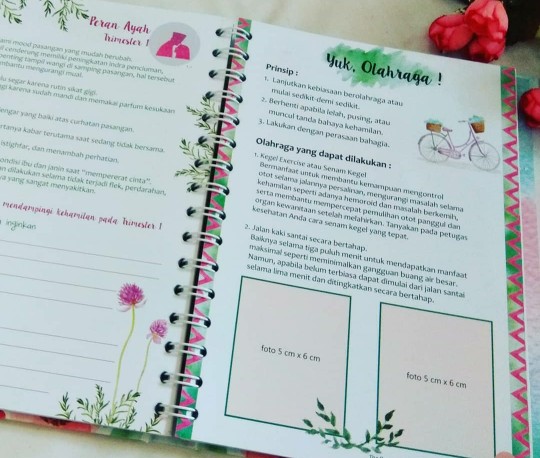 Peran Ayah
Trimester 1
mood pasangan yang mudah berubah.
cenderung memiliki peningkatan indra penciuman,
penting tampil wangi di samping pasangan, hal tersebut
membantu mengurangi mual.
segar karena rutin sikat gigi.
karena sudah mandi dan memakai parfum kesukaan
yang baik atas curhatan pasangan.
kabar terutama saat sedang tidak bersama.
istighfar, dan menambah perhatian.
ibu dan janin saat "mempererat cinta".
dilakukan selama tidak terjadi flek, perdarahan,
yang sangat menyakitkan.
mendampingi kehamilan pada Trimester 1
inginkan
Yuk, Olahraga !
Prinsip :
1. Lanjutkan kebiasaan berolahraga atau
mulai sedikit demi sedikit.
2. Berhenti apabila lelah, pusing, atau
muncul tanda bahaya kehamilan.
3. Lakukan dengan perasaan bahagia.
Olahraga yang dapat dilakukan :
1. Kegel Exercise atau Senam Kegel
Bermanfaat untuk membantu kemampuan mengontrol
otot selama jalannya persalinan, mengurangi masalah selama
kehamilan seperti adanya hemoroid dan masalah berkemih,
serta membantu mempercepat pemulihan otot panggul dan
organ kewanitaan setelah melahirkan. Tanyakan pada petugas
kesehatan Anda cara senam kegel yang tepat.
2. Jalan kaki santai secara bertahap.
Baiknya selama tiga puluh menit untuk mendapatkan manfaat
maksimal seperti meminimalkan gangguan buang air besar.
Namun, apabila belum terbiasa dapat dimulai dari jalan santai
selama lima menit dan ditingkatkan secara bertahap.
foto 5 cm x 6 cm
foto 5 cm x 6 cm